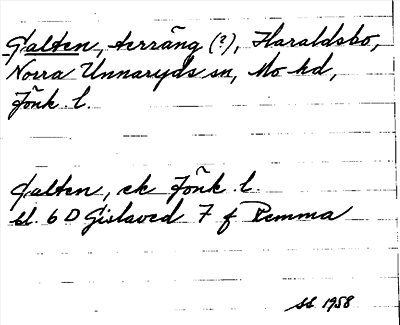 Galten, terräng (?), Haraldsbo,
Norra Unnaryds sn, Mo hd,
Jönk. l.
Galten, ek Jönk. l.
bl. 6 D Gislaved 7 f Remma
SS 1958